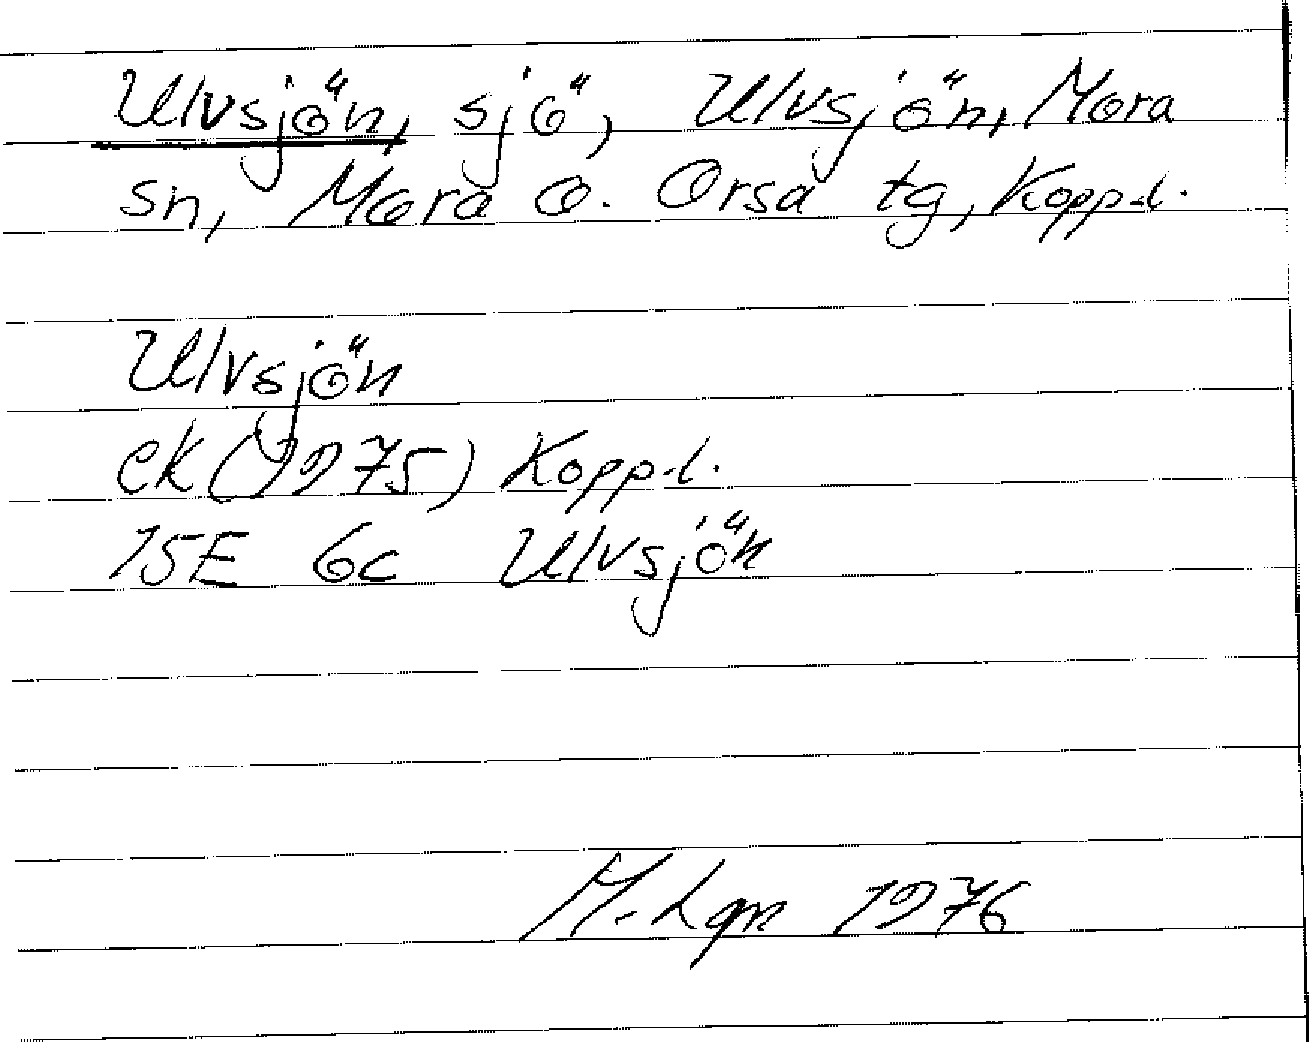 Ulvsjön, sjö, Ulvsjön, Mora
sn, Mora o. Orsa tg, Kopp.l.
Ulvsjön
ek (1975) Kopp.l.
15E 6c Ulvsjön
M. Lgn 1976